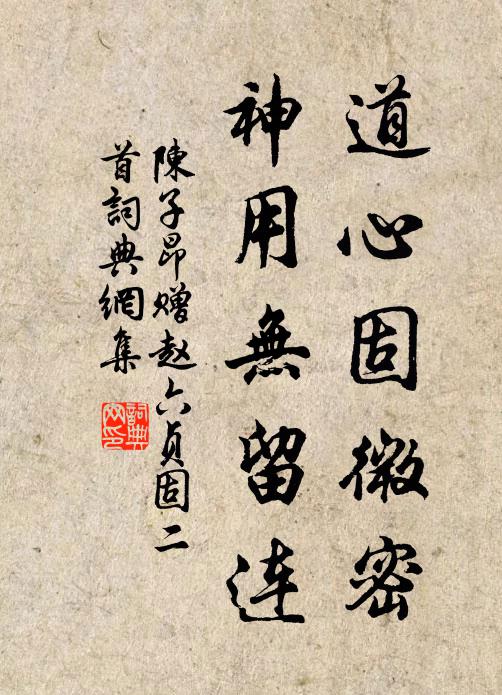 道心固微密
神用無留連
陳子昂赠赵六贞固二
首詞典網集
詞典网印